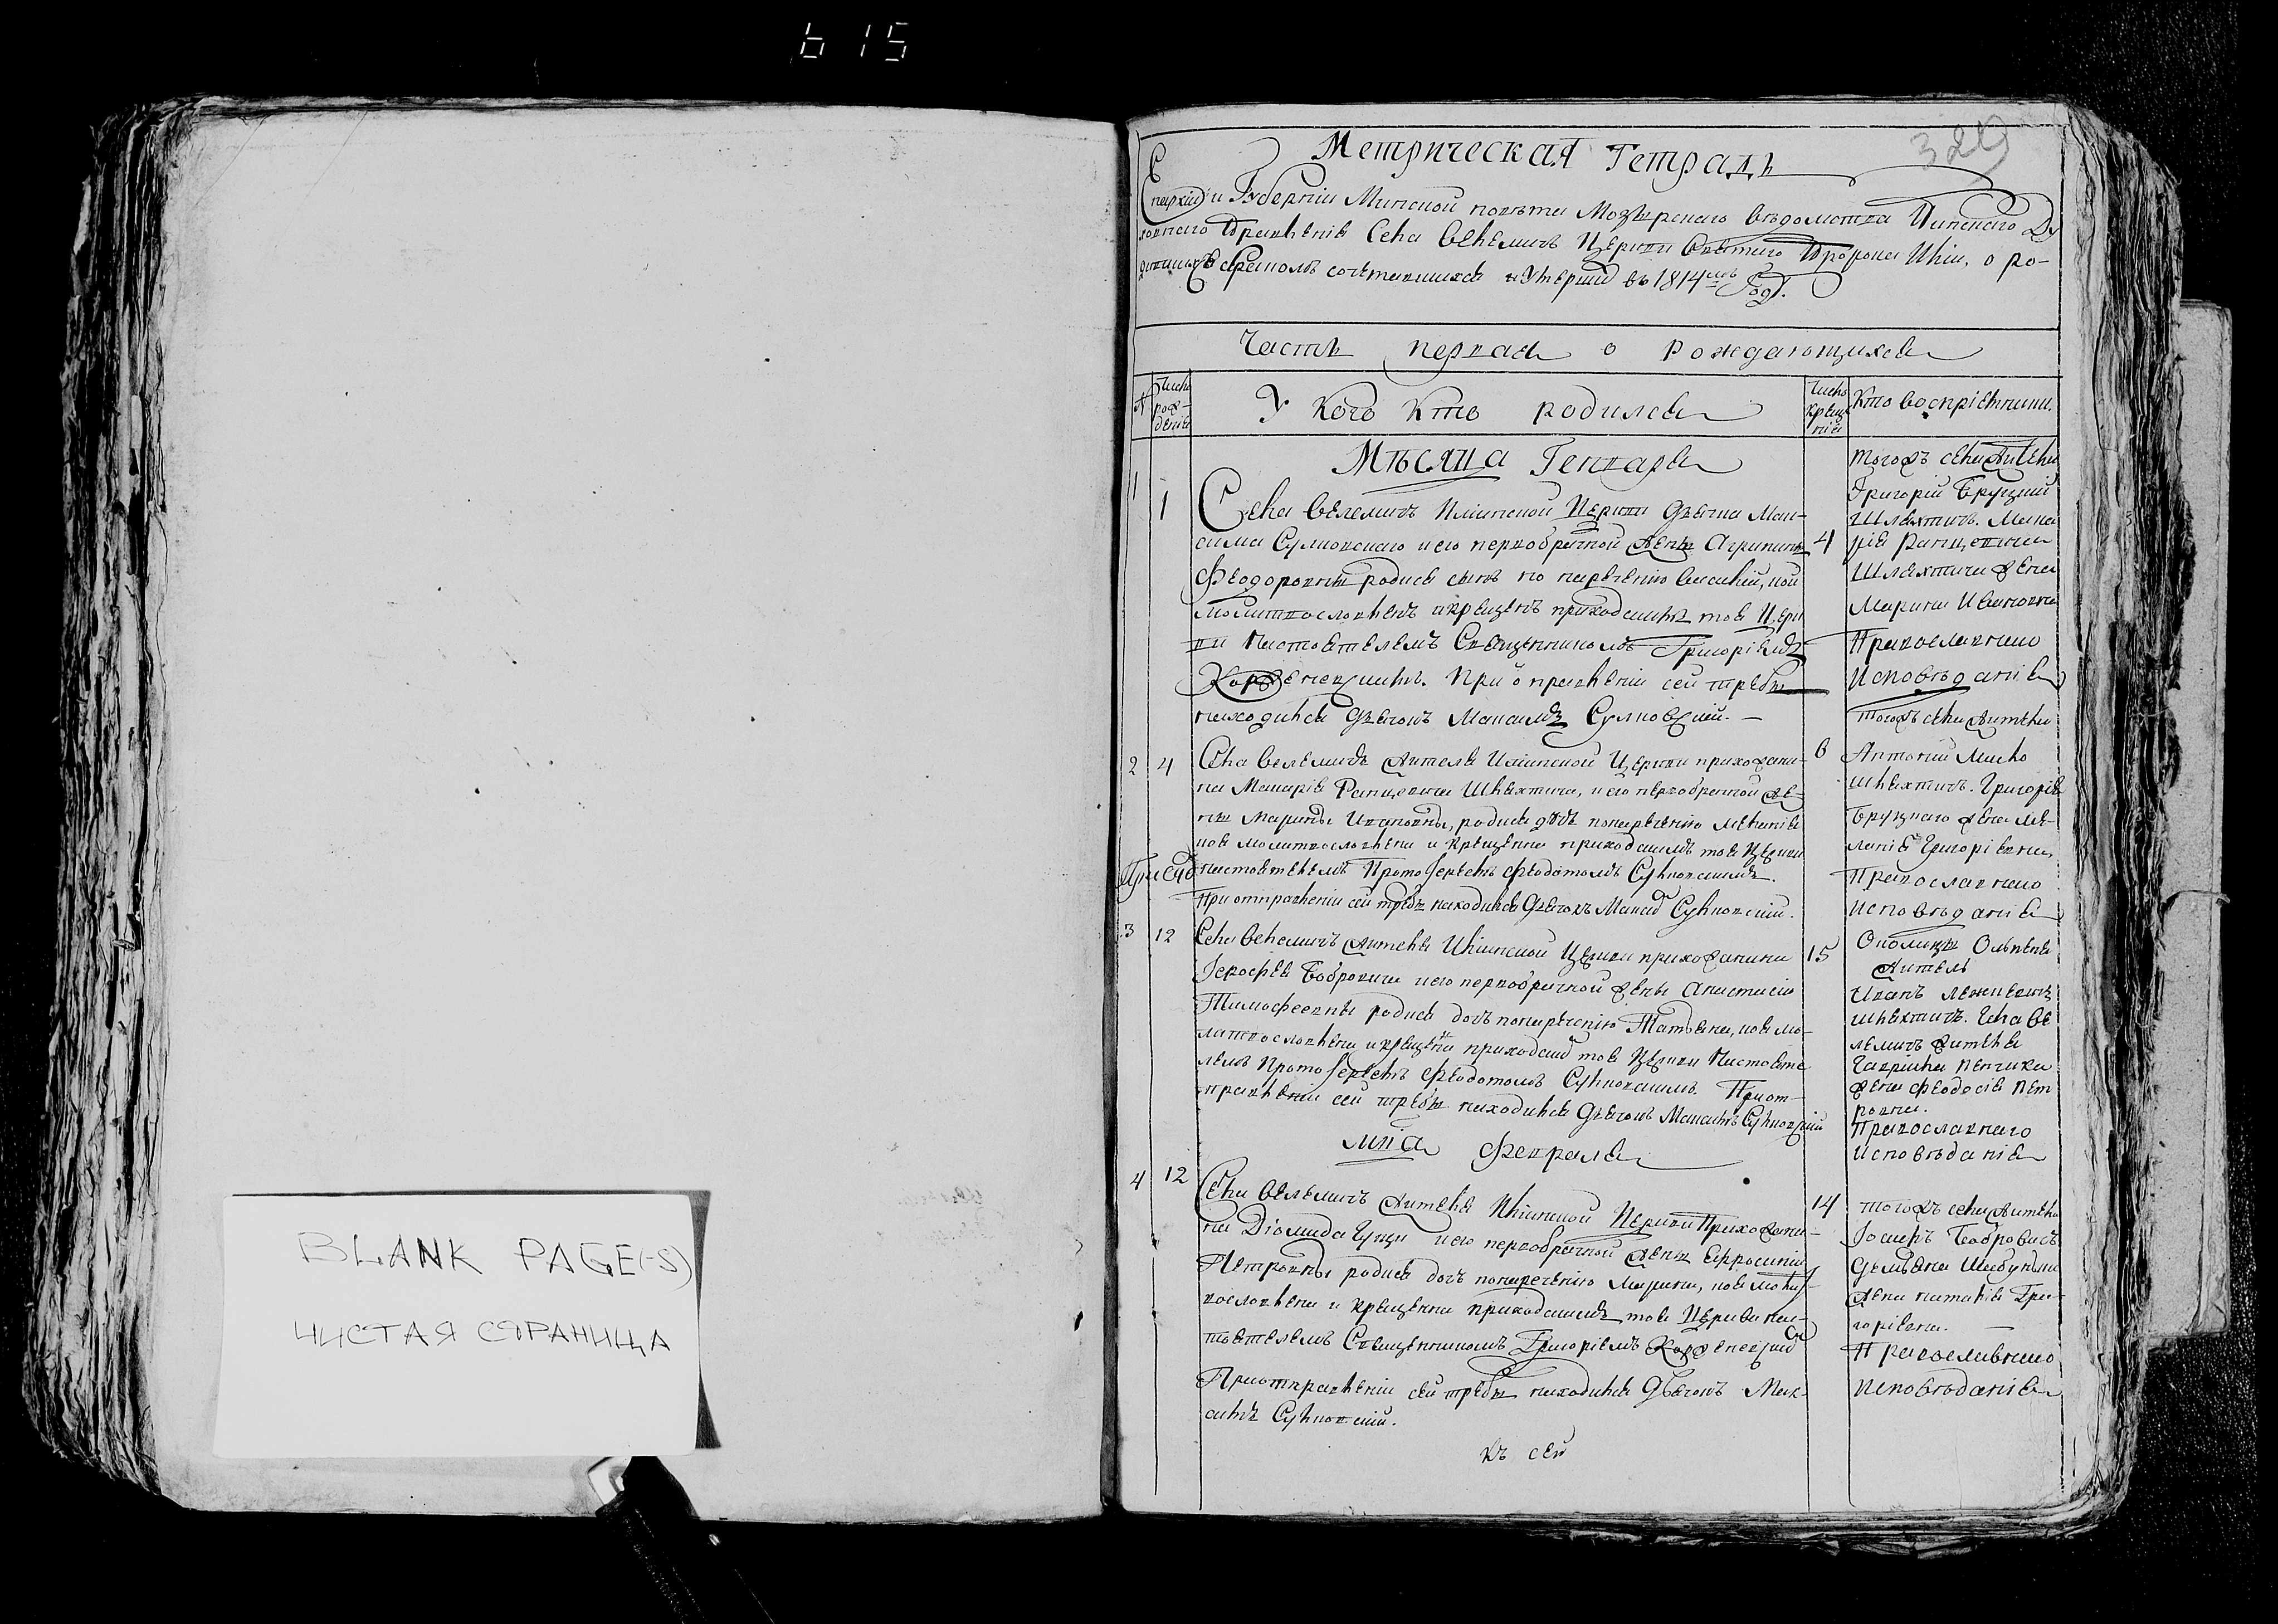 615
BLANK PAGE(-S)
ЧИСТАЯ СТРАНИЦА
329
Метрическая Тетрадь
Епархіи и Губерніи Минской повѣта Мозырскаго вѣдомства Пинскаго Ду
ховнаго Правленія Села Велемичъ Церкви Святаго Пророка Иліи, о ро-
дившихся бракомъ сочетавшихся и Умершихъ въ 1814мъ Годѣ.
Часть первая о рождающихся
№ Число рождения У Кого Кто родился Число крещенія Кто воспріемники.
Мѣсяца Генваря
1 1
Села Велемичъ Илiинской Церкви дьячка Мак-
сима Сулковскаго и его первобрачной жены Агрипины
Феодоровны родися сынъ по наречению Василий, кой
молитвословленъ и крещенъ приходскимъ тоя Церк
ви Настоятелемъ Священникомъ Григоріемъ
При отправленіи сей требы
находился дьячокъ Максимъ Сулковский.
4
тогожъ села житель
Григорій Бруцкий
Шляхтичъ. Мака
рія Ранцевича
Шляхтича жена
Марина Ивановна
Православнаго
Исповѣданія
2 4
Села Велемичъ жителя Илiинской Церкви прихожани-
на Макарія Ранцевича Шляхтича, и его первобрачной же-
ны Марины Ивановны, родися дочь по наречению Меланія
коя молитвословлена и крещенна приходскимъ тоя Церкви
настоятелемъ Протоіереемъ Феодотомъ Сулковскимъ.
При отправленіи сей требы находился Дьячокъ Максимъ Сулковскій.
6
тогожъ села житель
Антоний Мисko
шляхтичъ. Григорія
Бруцкаго жена Ме-
ланія Григоріевна,
Православнаго
исповѣданія
3 12
Села Велемичъ жителя Илiинской Церкви прихожанина
Іерофея Бобровича и его первобрачной жены Анастасіи
Тимофеевны родися дочь по наречению Татьяна, коя мо-
литвословлена и крещена приходскимъ тоя Церкви Настояте
лемъ Протоіереемъ Феодотомъ Сулковскимъ. При от-
правленіи сей требы находился Дьячокъ Максимъ Сулковскій
15
Околицы Ольпеня
Житель
Иванъ
шляхтичъ. Села Ве
лемичъ жителя
Гаврiила Пенчика
жена Феодосія Пет
ровна.
Православнаго
исповѣданія
мца Февраля
4 12
Села Велемичъ жителя Илiинской Церкви Прихожани-
на Діомида Гуща и его первобрачной жены Ефросинiи
Петровны родися дочь по наречению Марина, коя молит
вословлена и крещенна приходскимъ тоя Церкви нас-
тоятелемъ Священникомъ Григоріемъ
При отправленіи сей требы находился Дьячокъ Мак-
симъ Сулковский.
14
тогожъ села житель
Іосифъ Бобровичъ
Демьяна Шибунька
жена Наталія Гри-
горіевна.
Православнаго
исповѣданія
къ сей